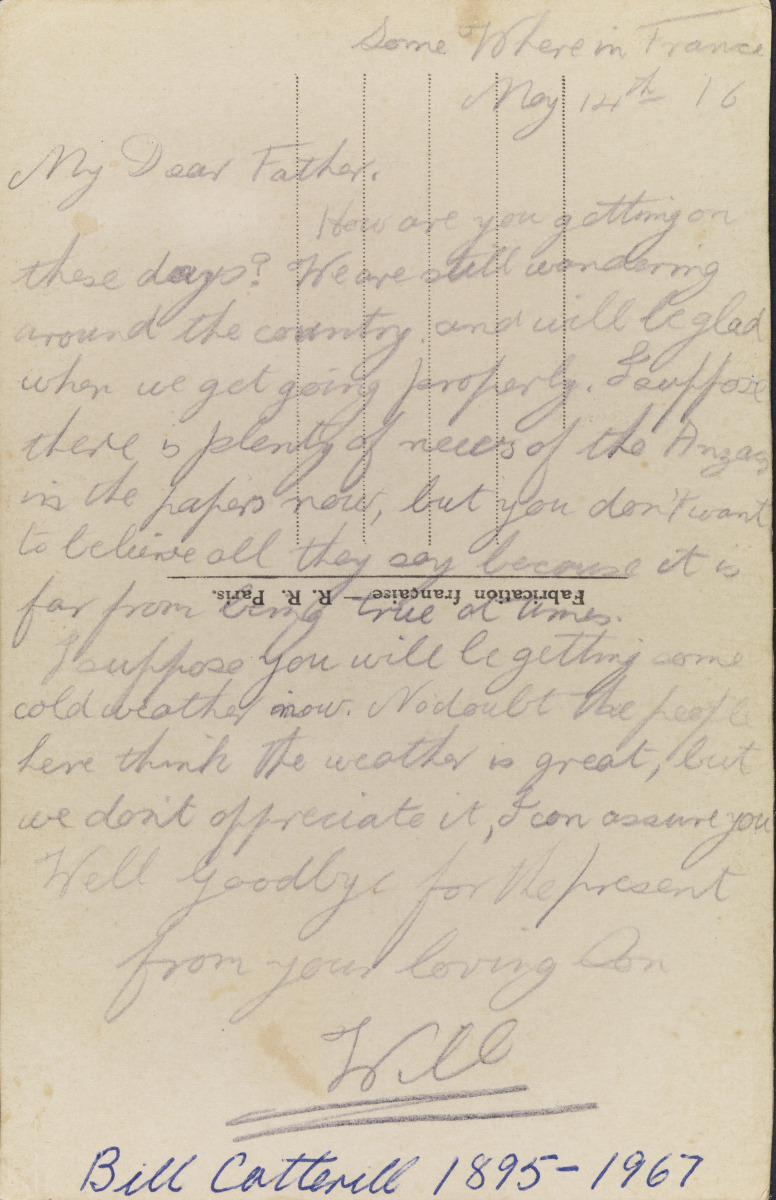 Some Where in France
May 14th 16
My Dear Father.
How are you getting on
these days? We are still wandering
around the country, and will be glad
when we get going properly. I suppose
there is plenty of news of the Anzacs
in the papers now, but you don't want
to believe all they say because it is
Fabrication française — R. R. Paris.
far from being true at times.
I suppose you will be getting some
cold weather now. No doubt the people
here think the weather is great, but
we don't appreciate it, I can assure you
Well Goodbye for the present
from your loving Son
Will
Bill Cotterill 1895-1967